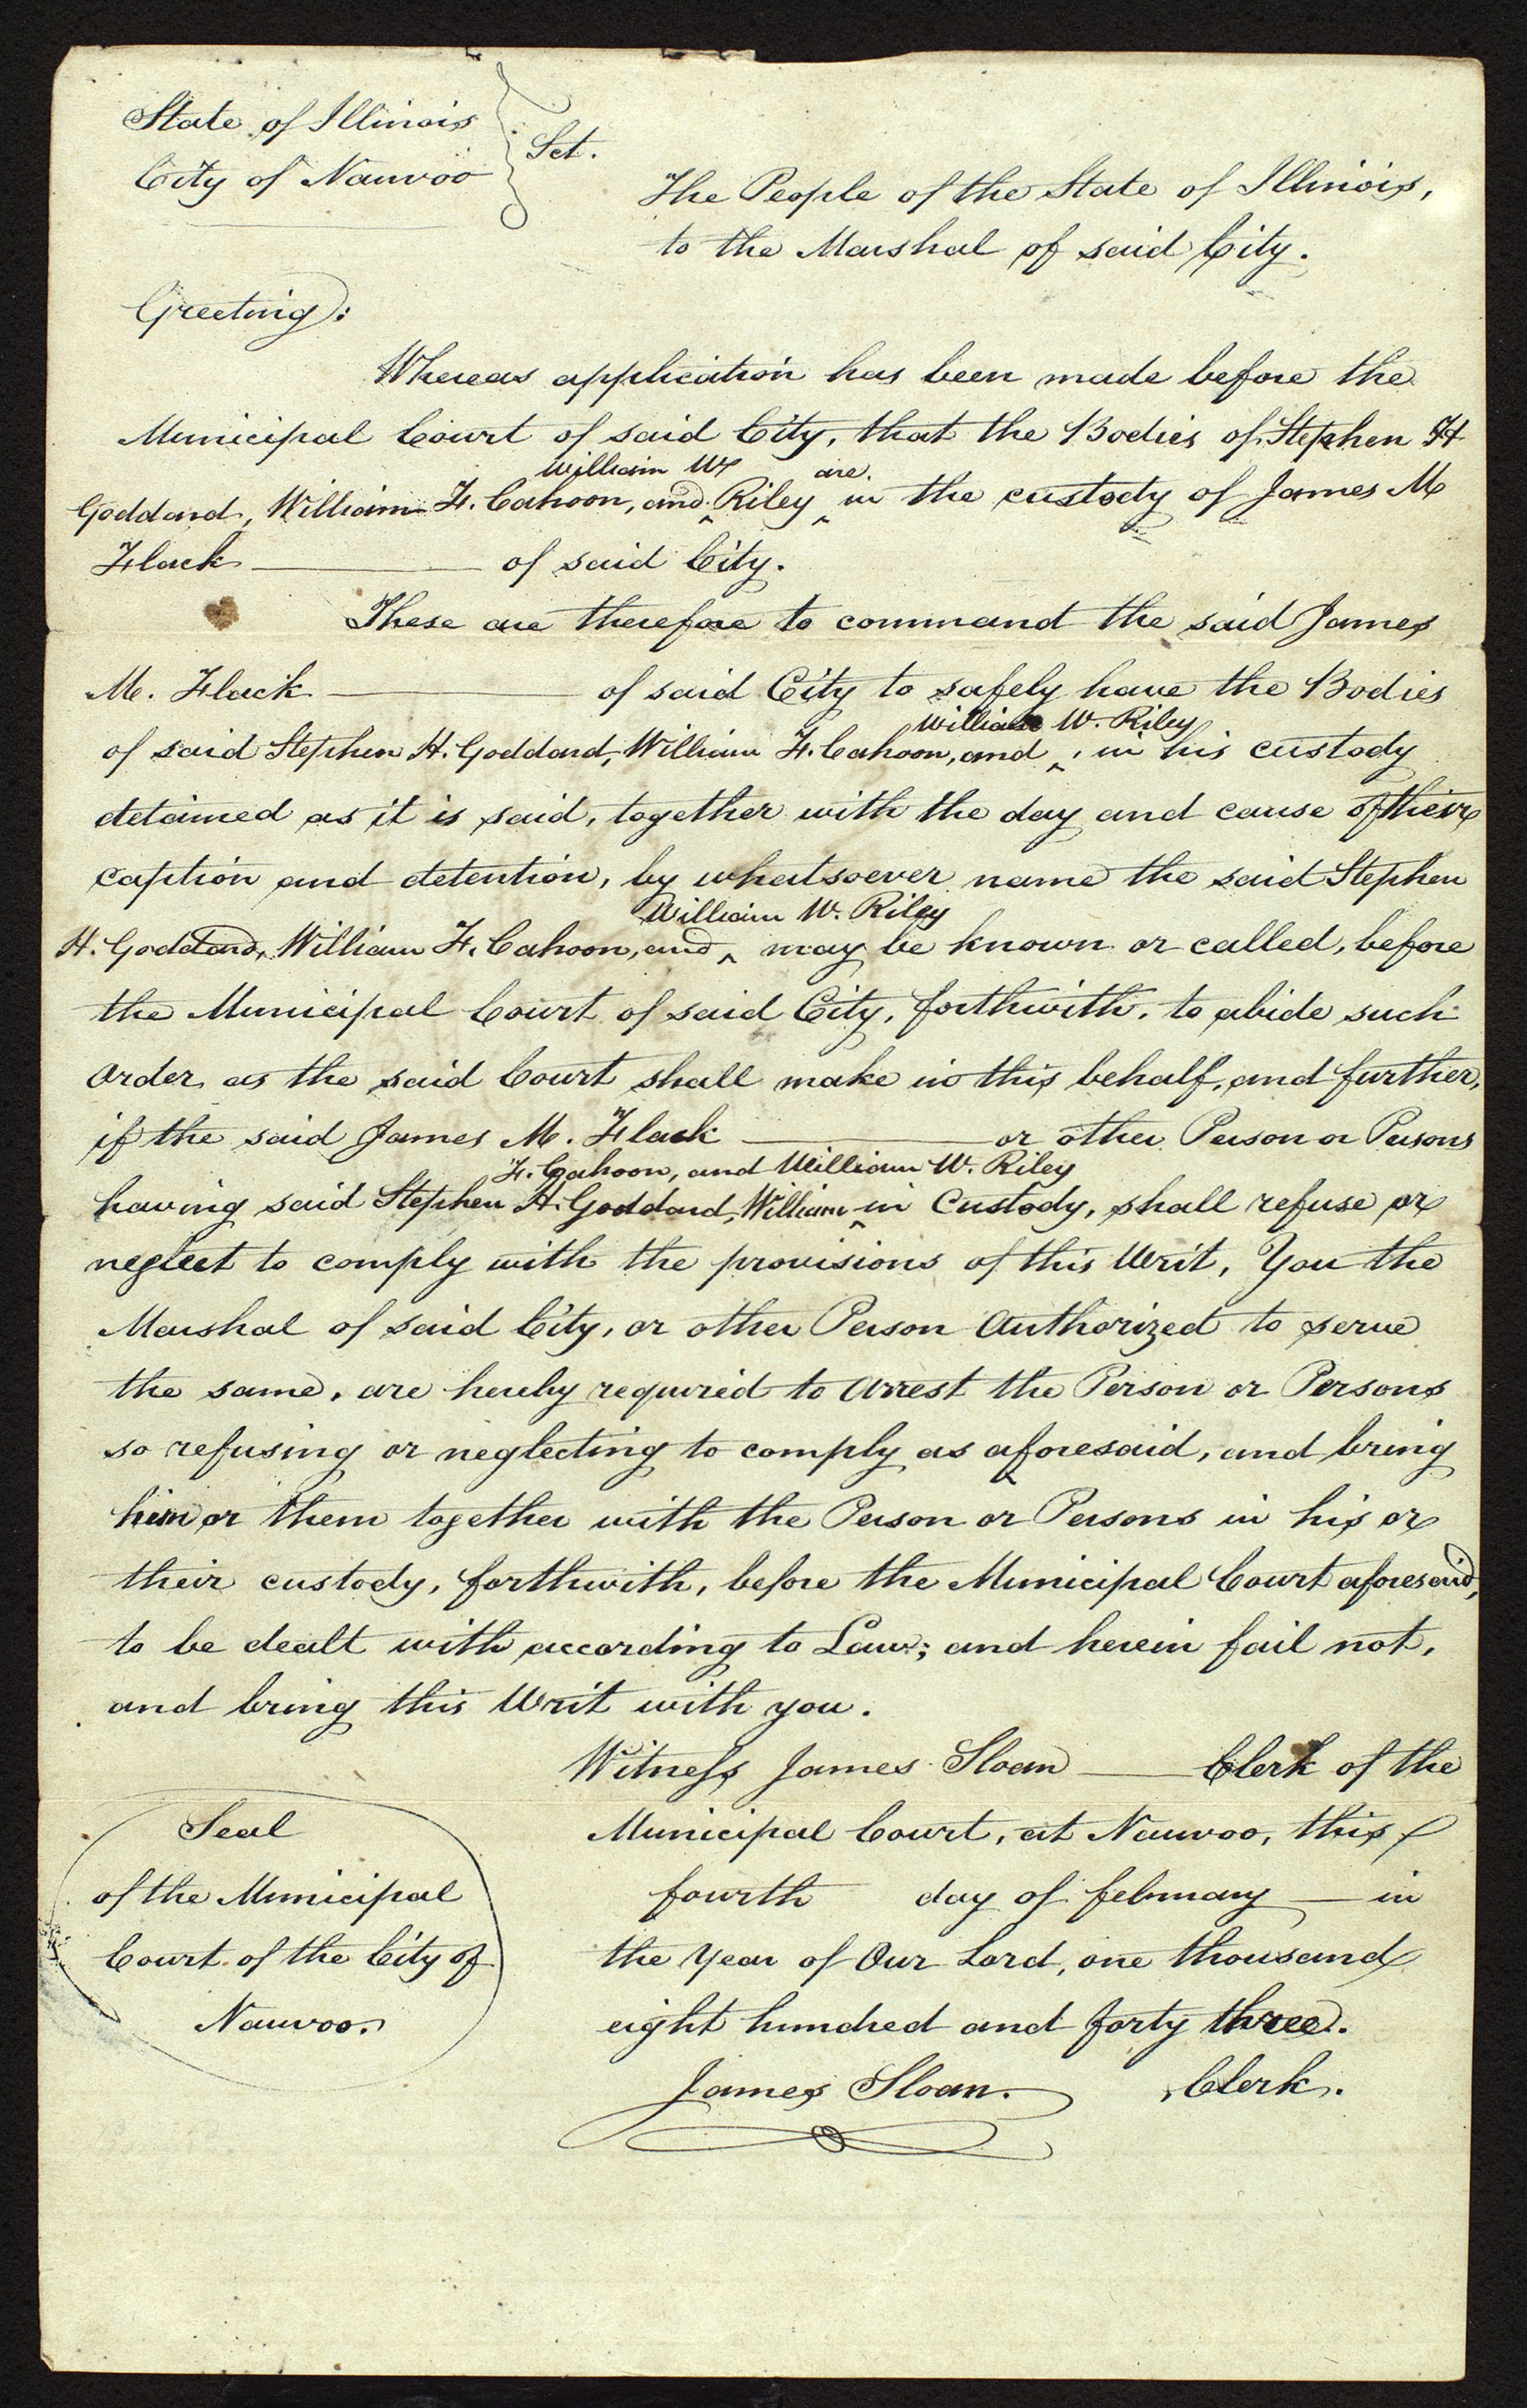 State of Illinois
City of Nauvoo
Sct.
The People of the State of Illinois,
to the Marshal of said City.
Greeting:
Whereas application has been made before the
Municipal Court of said City, that the Bodies of Stephen H
William W are
Goddard, William F. Cahoon, and ^ Riley ^ in the custody of James M
Flack —— of said City.
These are therefore to command the said James
M. Flack —— of said City to safely have the Bodies
William W. Riley
of said Stephen H. Goddard, William F. Cahoon, and ^, in his custody
detained as it is said, together with the day and cause of their
caption and detention, by whatsoever name the said Stephen
William W. Riley
H. Goddard, William F. Cahoon, and ^ may be known or called, before
the Municipal Court of said City, forthwith, to abide such
Order as the said Court shall make in this behalf, and further,
if the said James M. Flack —— or other Person or Persons
F. Cahoon, and William W. Riley
having said Stephen H. Goddard, William ^ in Custody, shall refuse or
neglect to comply with the provisions of this Writ, You the
Marshal of said City, or other Person Authorized to serve
the same, are hereby required to Arrest the Person or Persons
so refusing or neglecting to comply as aforesaid, and bring
him or them together with the Person or Persons in his or
their custody, forthwith, before the Municipal Court aforesaid,
to be dealt with according to Law; and herein fail not,
and bring this Writ with you.
Witness James Sloan —— Clerk of the
Municipal Court, at Nauvoo, this
fourth day of february —— in
the Year of Our Lord, one thousand
eight hundred and forty three.
James Sloan. Clerk.
Seal
of the Municipal
Court of the City of
Nauvoo.